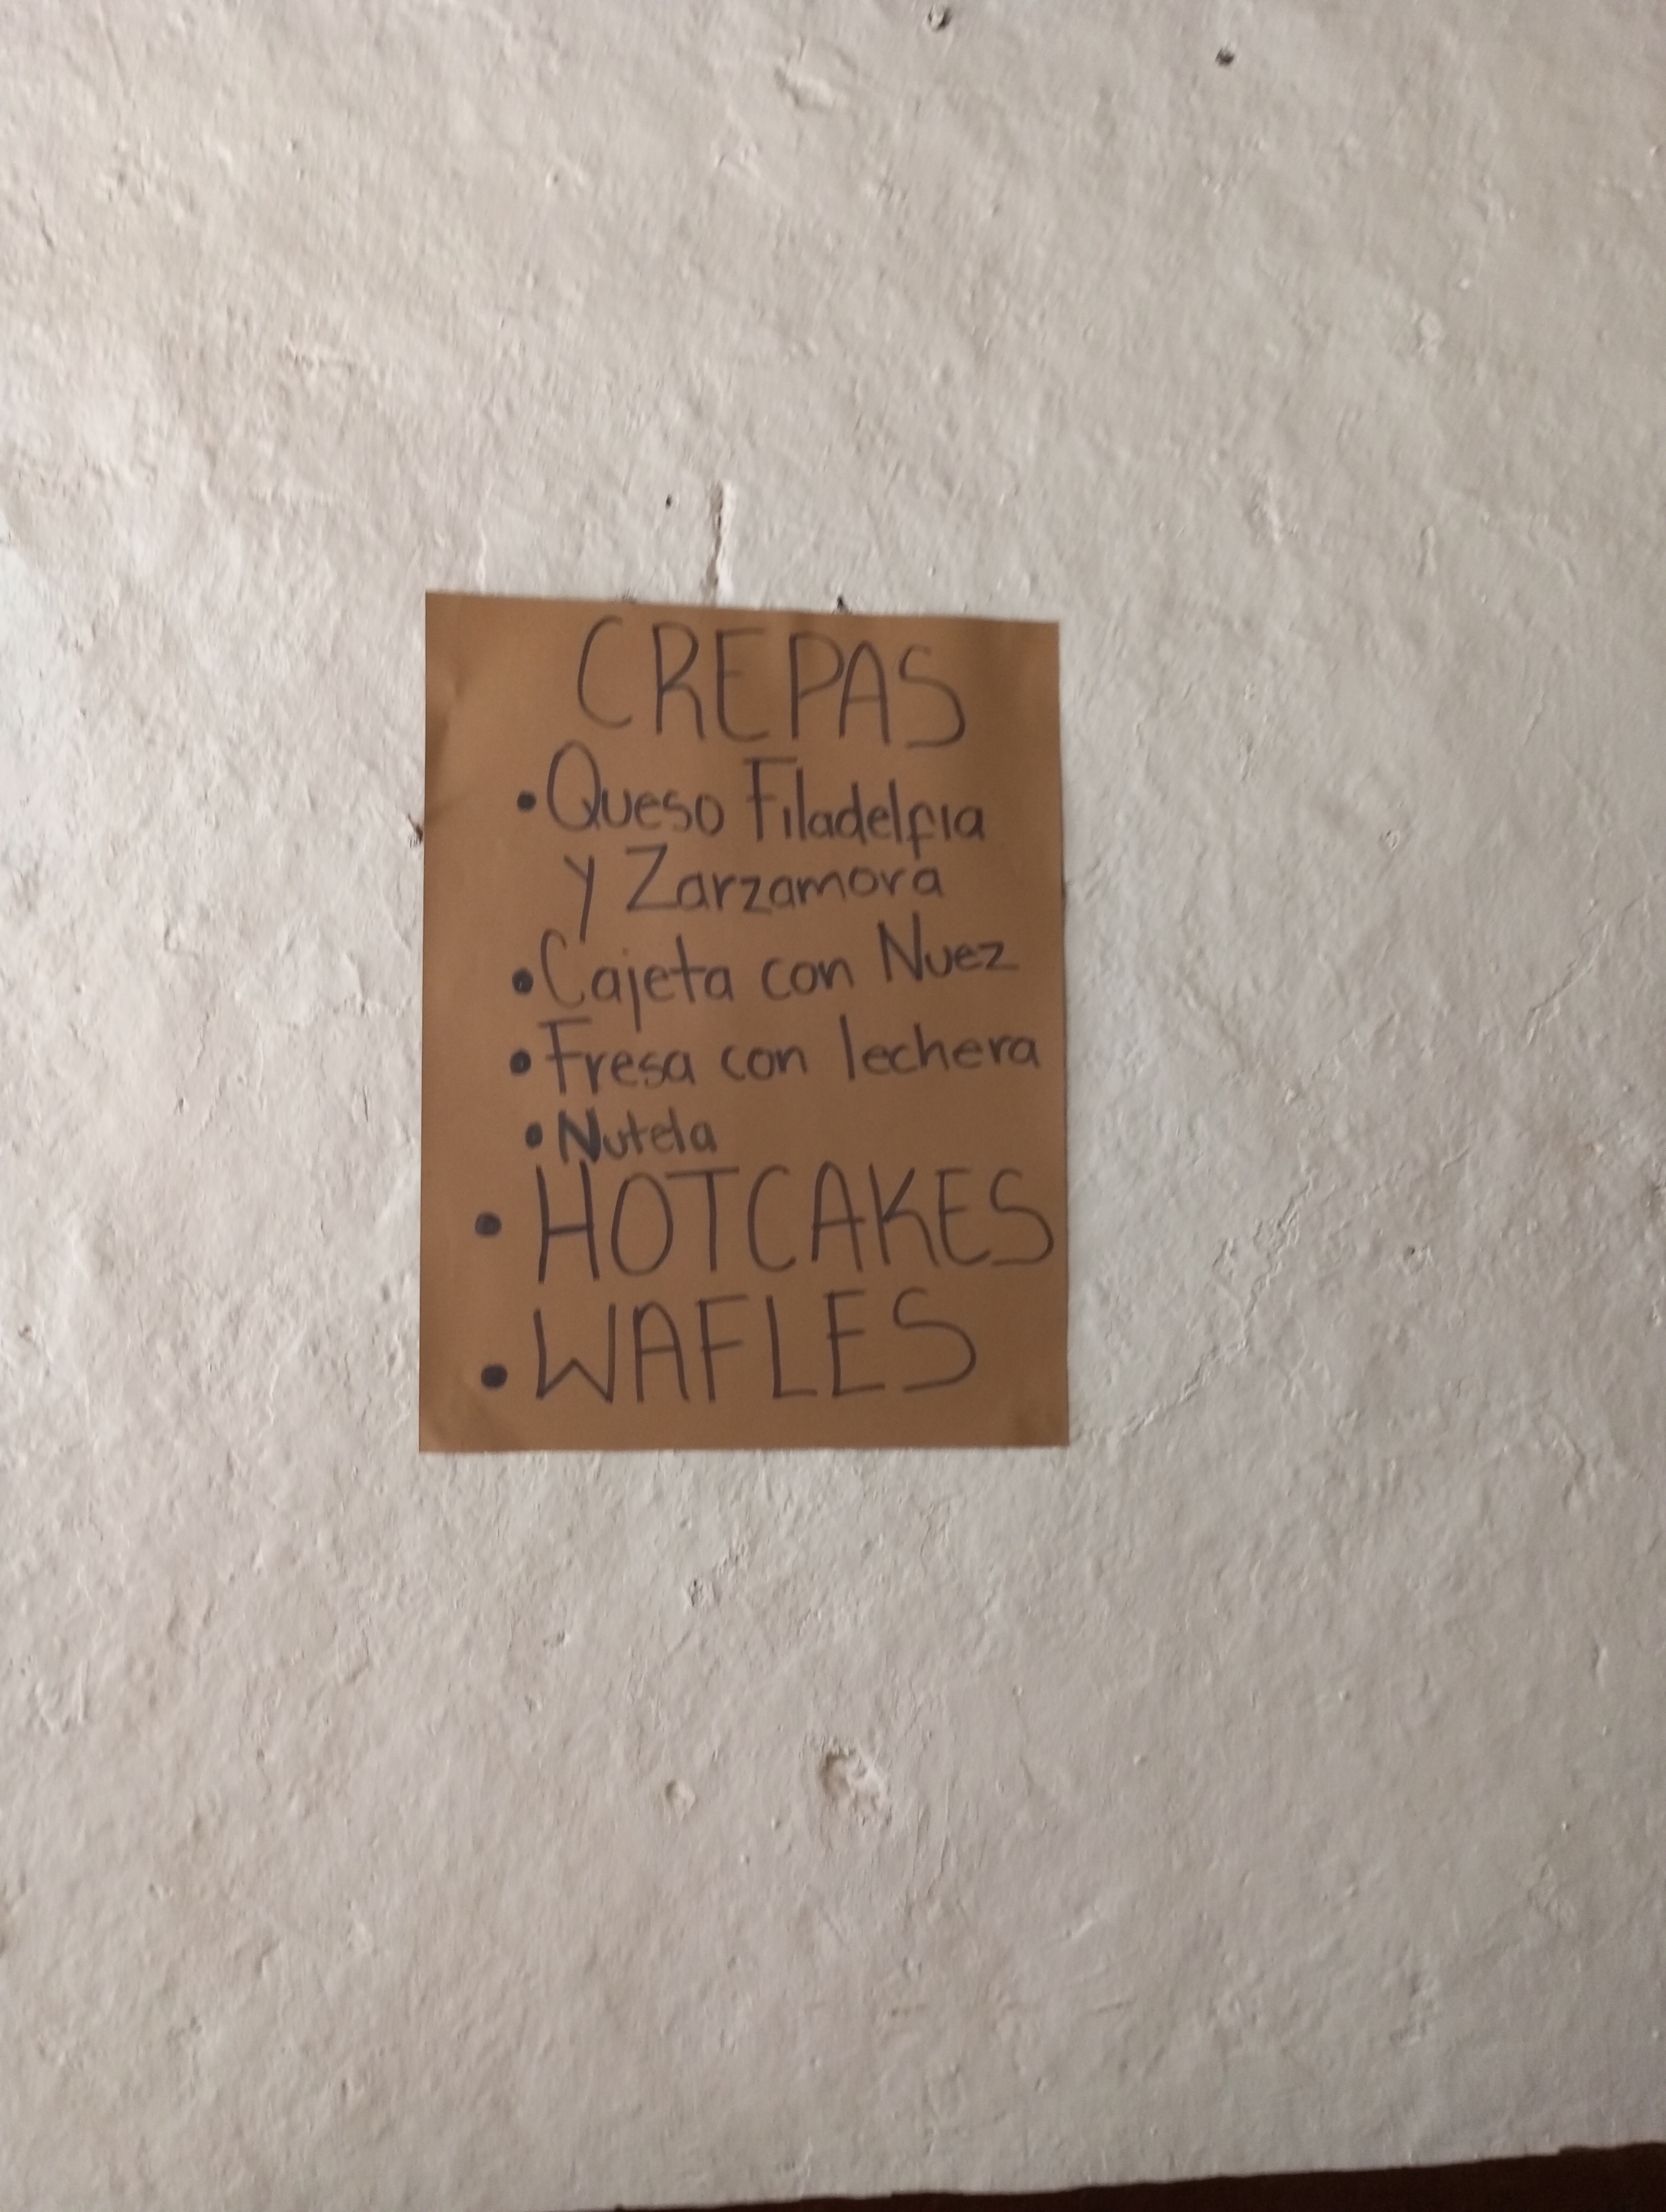 CREPAS
• Queso Filadelfia
y Zarzamora
• Cajeta con Nuez
• Fresa con lechera
• Nutela
• HOTCAKES
• WAFLES